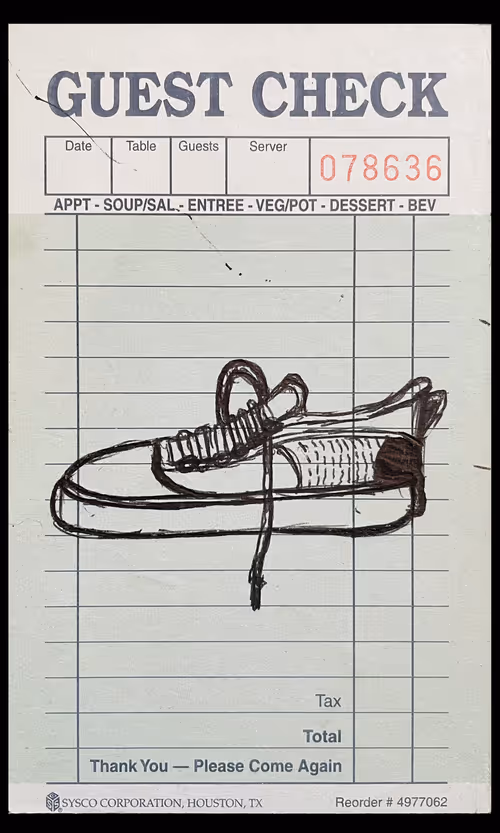 GUEST CHECK
Date Table Guests Server 078636
APPT - SOUP/SAL - ENTREE - VEG/POT - DESSERT - BEV
Tax
Total
Thank You — Please Come Again
SYSCO CORPORATION, HOUSTON, TX Reorder # 4977062